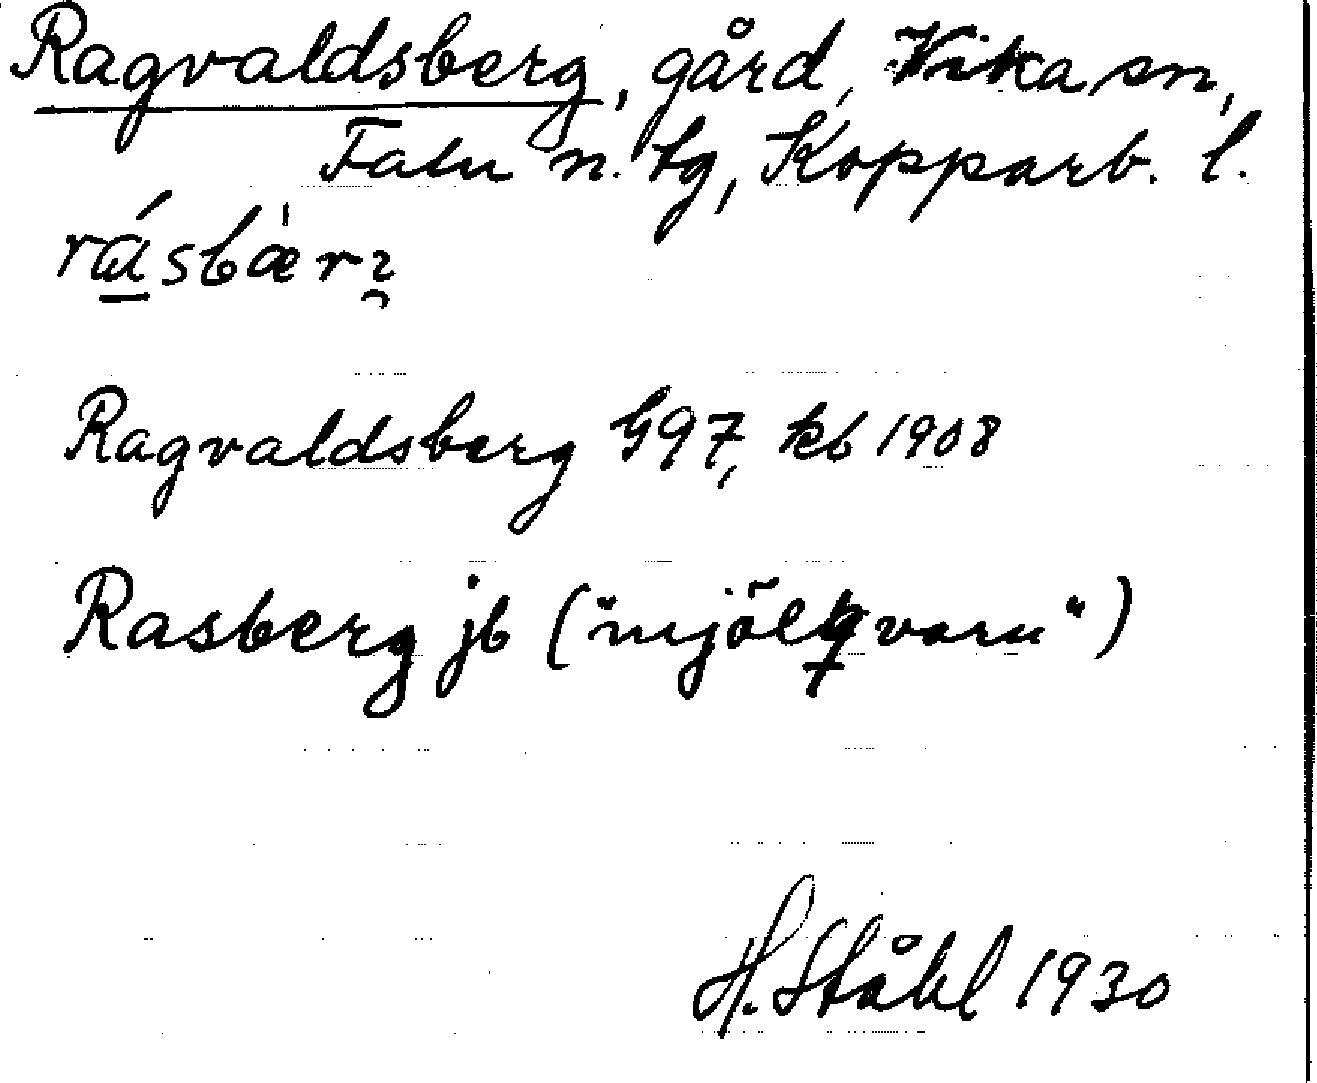 Ragvaldsberg, gård, Vika sn,
Falu n. tg, Kopparb. l.
rásbær
Ragvaldsberg G97, kb 1908
Rasberg jb ("mjölqvarn")
H. Ståhl 1930